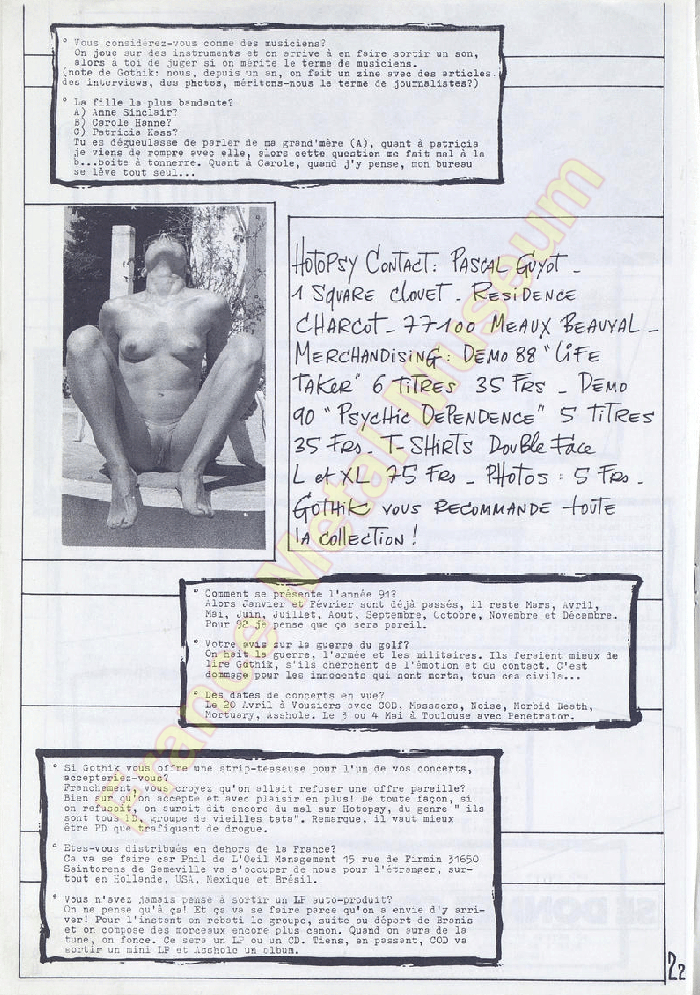 ° Vous considérez-vous comme des musiciens?
On joue sur des instruments et on arrive à en faire sortir un son,
alors à toi de juger si on mérite le terme de musiciens.
(note de Gothik: nous, depuis un an, on fait un zine avec des articles
des interviews, des photos, méritons-nous le terme de journalistes?)
° La fille la plus bandante?
A) Anne Sinclair?
B) Carole Hanne?
C) Patricia Kass?
Tu es dégueulasse de parler de ma grand'mère (A), quant à patricia
je viens de rompre avec elle, alors cette question me fait mal à la
b...boite à tonnerre. Quant à Carole, quand j'y pense, mon bureau
se lève tout seul...
HOTOPSY CONTACT: PASCAL GUYOT -
1 SQUARE CLOUET - RESIDENCE
CHARCOT - 77100 MEAUX BEAUVAL -
MERCHANDISING: DEMO 88 "LIFE
TAKER" 6 TITRES 35 FRS - DEMO
90 "PSYCHIC DEPENDENCE" 5 TITRES
35 FRS - T-SHIRTS DOUBLE FACE
L et XL 75 FRS - PHOTOS : 5 FRS -
GOTHIK VOUS RECOMMANDE TOUTE
LA COLLECTION!
° Comment se présente l'année 91?
Alors Janvier et Février sont déjà passés, il reste Mars, Avril,
Mai, Juin, Juillet, Aout, Septembre, Octobre, Novembre et Décembre.
Pour 92 je pense que ça sera pareil.
° Votre avis sur la guerre du golf?
On hait la guerre, l'armée et les militaires. Ils feraient mieux de
lire Gothik, s'ils cherchent de l'émotion et du contact. C'est
dommage pour les innocents qui sont morts, tous ces civils...
° Les dates de concerts en vue?
Le 20 Avril à Vouziers avec COD, Massacra, Noise, Morbid Death,
Mortuary, Asshole. Le 3 ou 4 Mai à Toulouse avec Penetrator.
° Si Gothik vous offre une strip-teaseuse pour l'un de vos concerts,
accepteriez-vous?
Franchement, vous croyez qu'on allait refuser une offre pareille?
Bien sur qu'on accepte et avec plaisir en plus! De toute façon, si
on refusait, on aurait dit encore du mal sur Hotopsy, du genre " ils
sont tous PD, groupe de vieilles tata". Remarque, il vaut mieux
être PD que trafiquant de drogue.
° Etes-vous distribués en dehors de la France?
Ca va se faire car Phil de L'Oeil Management 15 rue de Firmin 31650
Saintorens de Gameville va s'occuper de nous pour l'étranger, sur-
tout en Hollande, USA, Mexique et Brésil.
° Vous n'avez jamais pensé à sortir un LP auto-produit?
On ne pense qu'à ça! Et ça va se faire parce qu'on a envie d'y arri-
ver! Pour l'instant on rebati le groupe, suite au départ de Bronis
et on compose des morceaux encore plus canon. Quand on aura de la
tune, on fonce. Ce sera un LP ou un CD. Tiens, en passant, COD va
sortir un mini LP et Asshole un album.
22
France Metal Museum